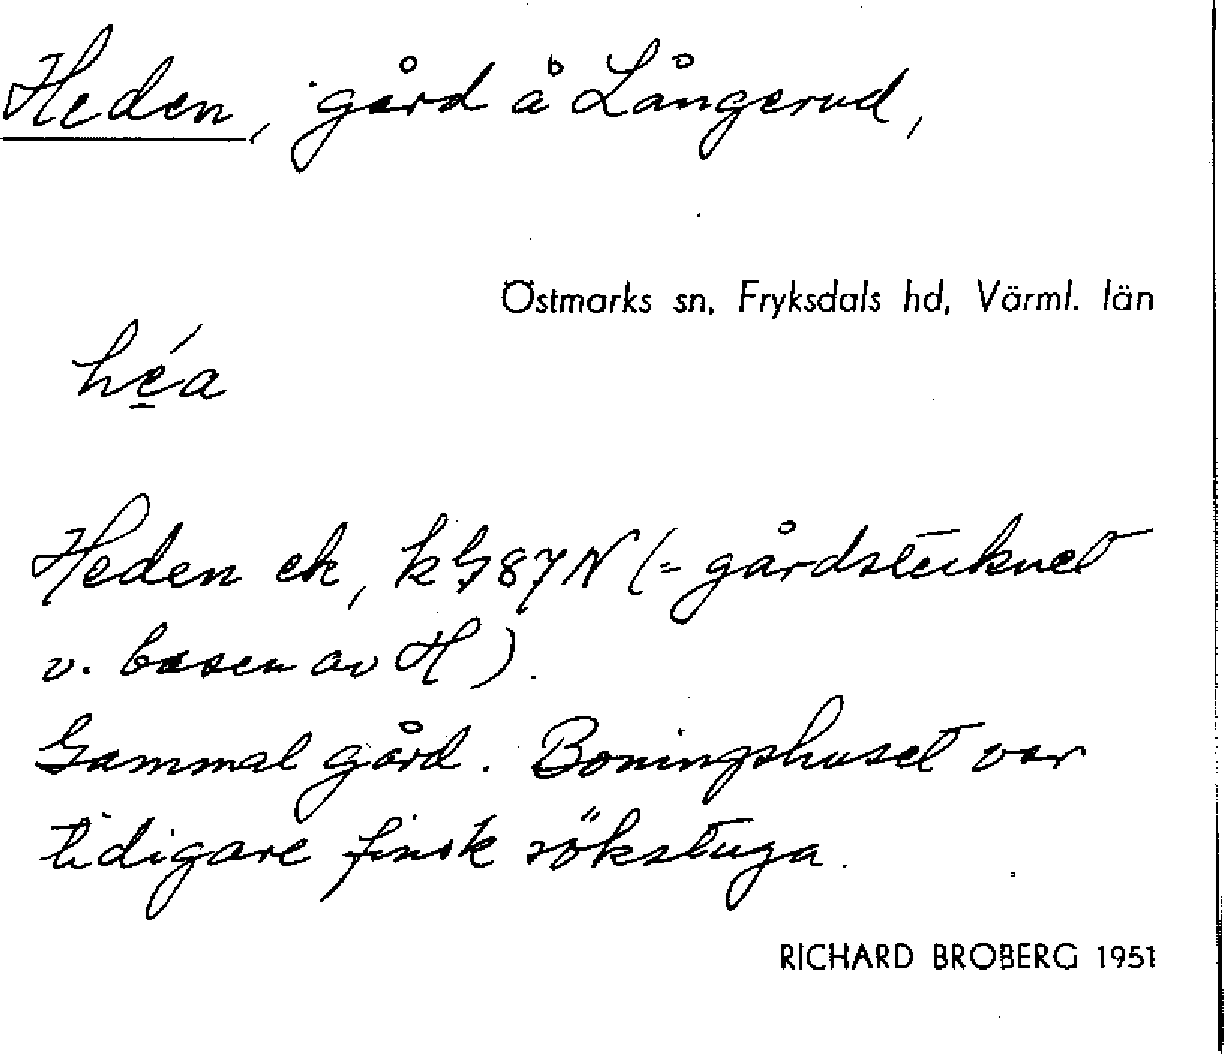 Heden, gård å Långerud,
Östmarks sn, Fryksdals hd, Värml. län
héa
Heden ek, k G87N (= gårdstecknet
v. basen av H).
Gammal gård. Boningshuset var
tidigare finsk rökstuga.
RICHARD BROBERG 1951